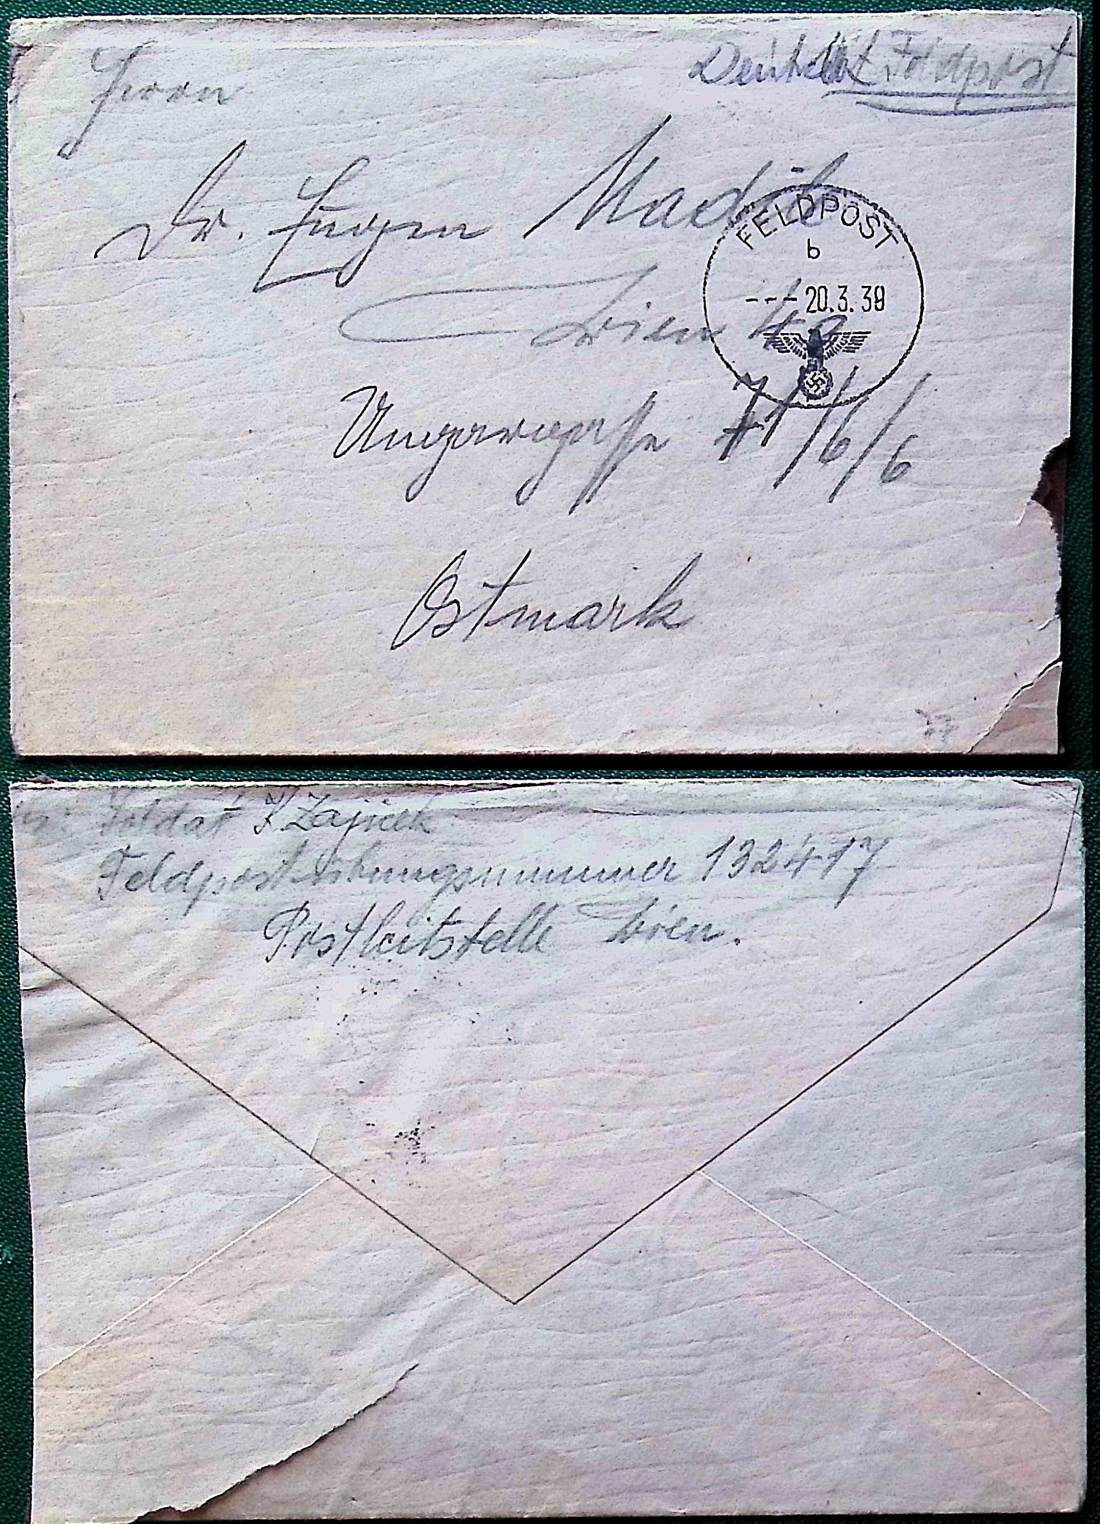 Deutsche Feldpost
Herrn
Dr. Eugen
FELDPOST
b
--- 20.3.39
Wien
Ungargasse 71/6/6
Ostmark
Soldat Zajicek
Feldpostübungsnummer 132417
Postleitstelle Wien.